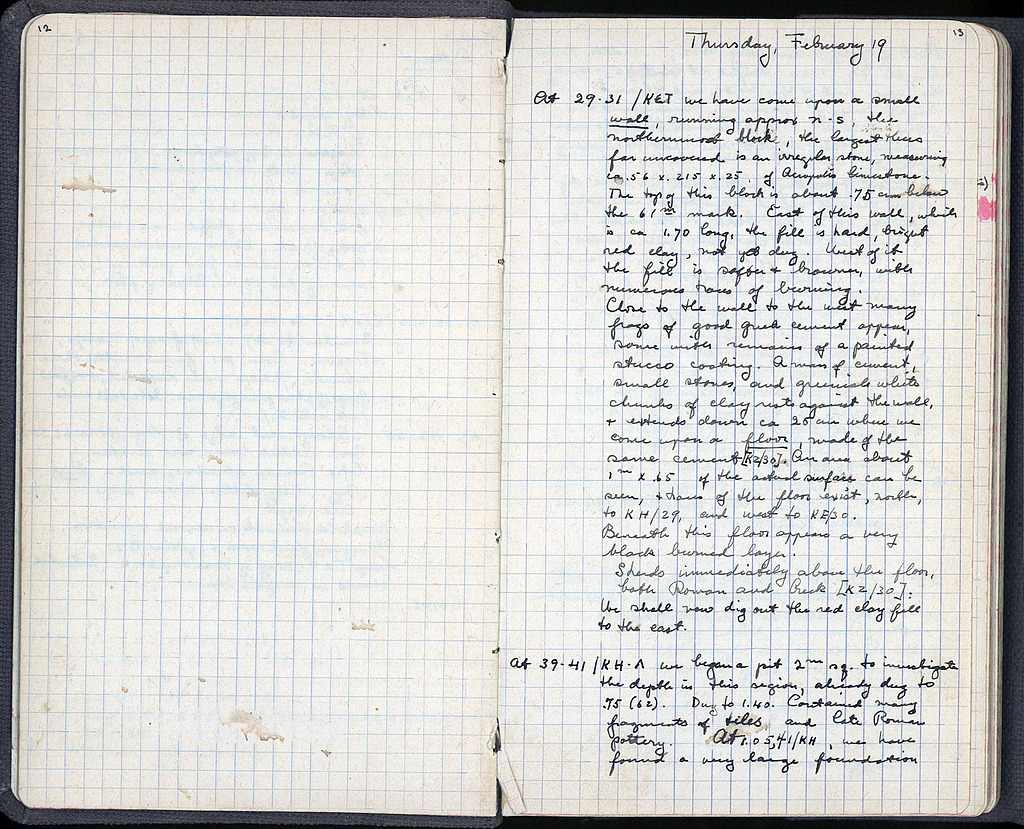 12
13
Thursday, February 19
At 29-31/KET we have come upon a small
wall, running approx n-s, the
northernmost block, the largest thus
far uncovered is an irregular stone, measuring
ca .56 x .215 x .25. of Acropolis limestone.
The top of this block is about .75 cm below
the 61 m mark. East of this wall, which
is ca 1.70 long, the fill is hard, bright
red clay, not yet dug. West of it
the fill is softer & browner, with
numerous traces of burning.
Close to the wall to the west many
frags of good greek cement appear,
some with remains of a painted
stucco coating. A mass of cement,
small stones, and greenish white
chunks of clay rests against the wall,
+ extends down ca 25 cm where we
come upon a floor, made of the
same cement [KZ/30]. An area about
1m x .65 of the actual surface can be
seen, & traces of the floor exist, north,
to KH/29, and west to KE/30.
Beneath this floor appears a very
black burned layer.
Sherds immediately above the floor,
both Roman and Greek [KZ/30].
We shall now dig out the red clay fill
to the east.
At 39-41/KH-Λ we began a pit 2m sq. to investigate
the depth in this region, already dug to
.75 (62). Dug to 1.40. Contained many
fragments of tiles and late Roman
pottery. At 1.05, 41/KH, we have
found a very large foundation